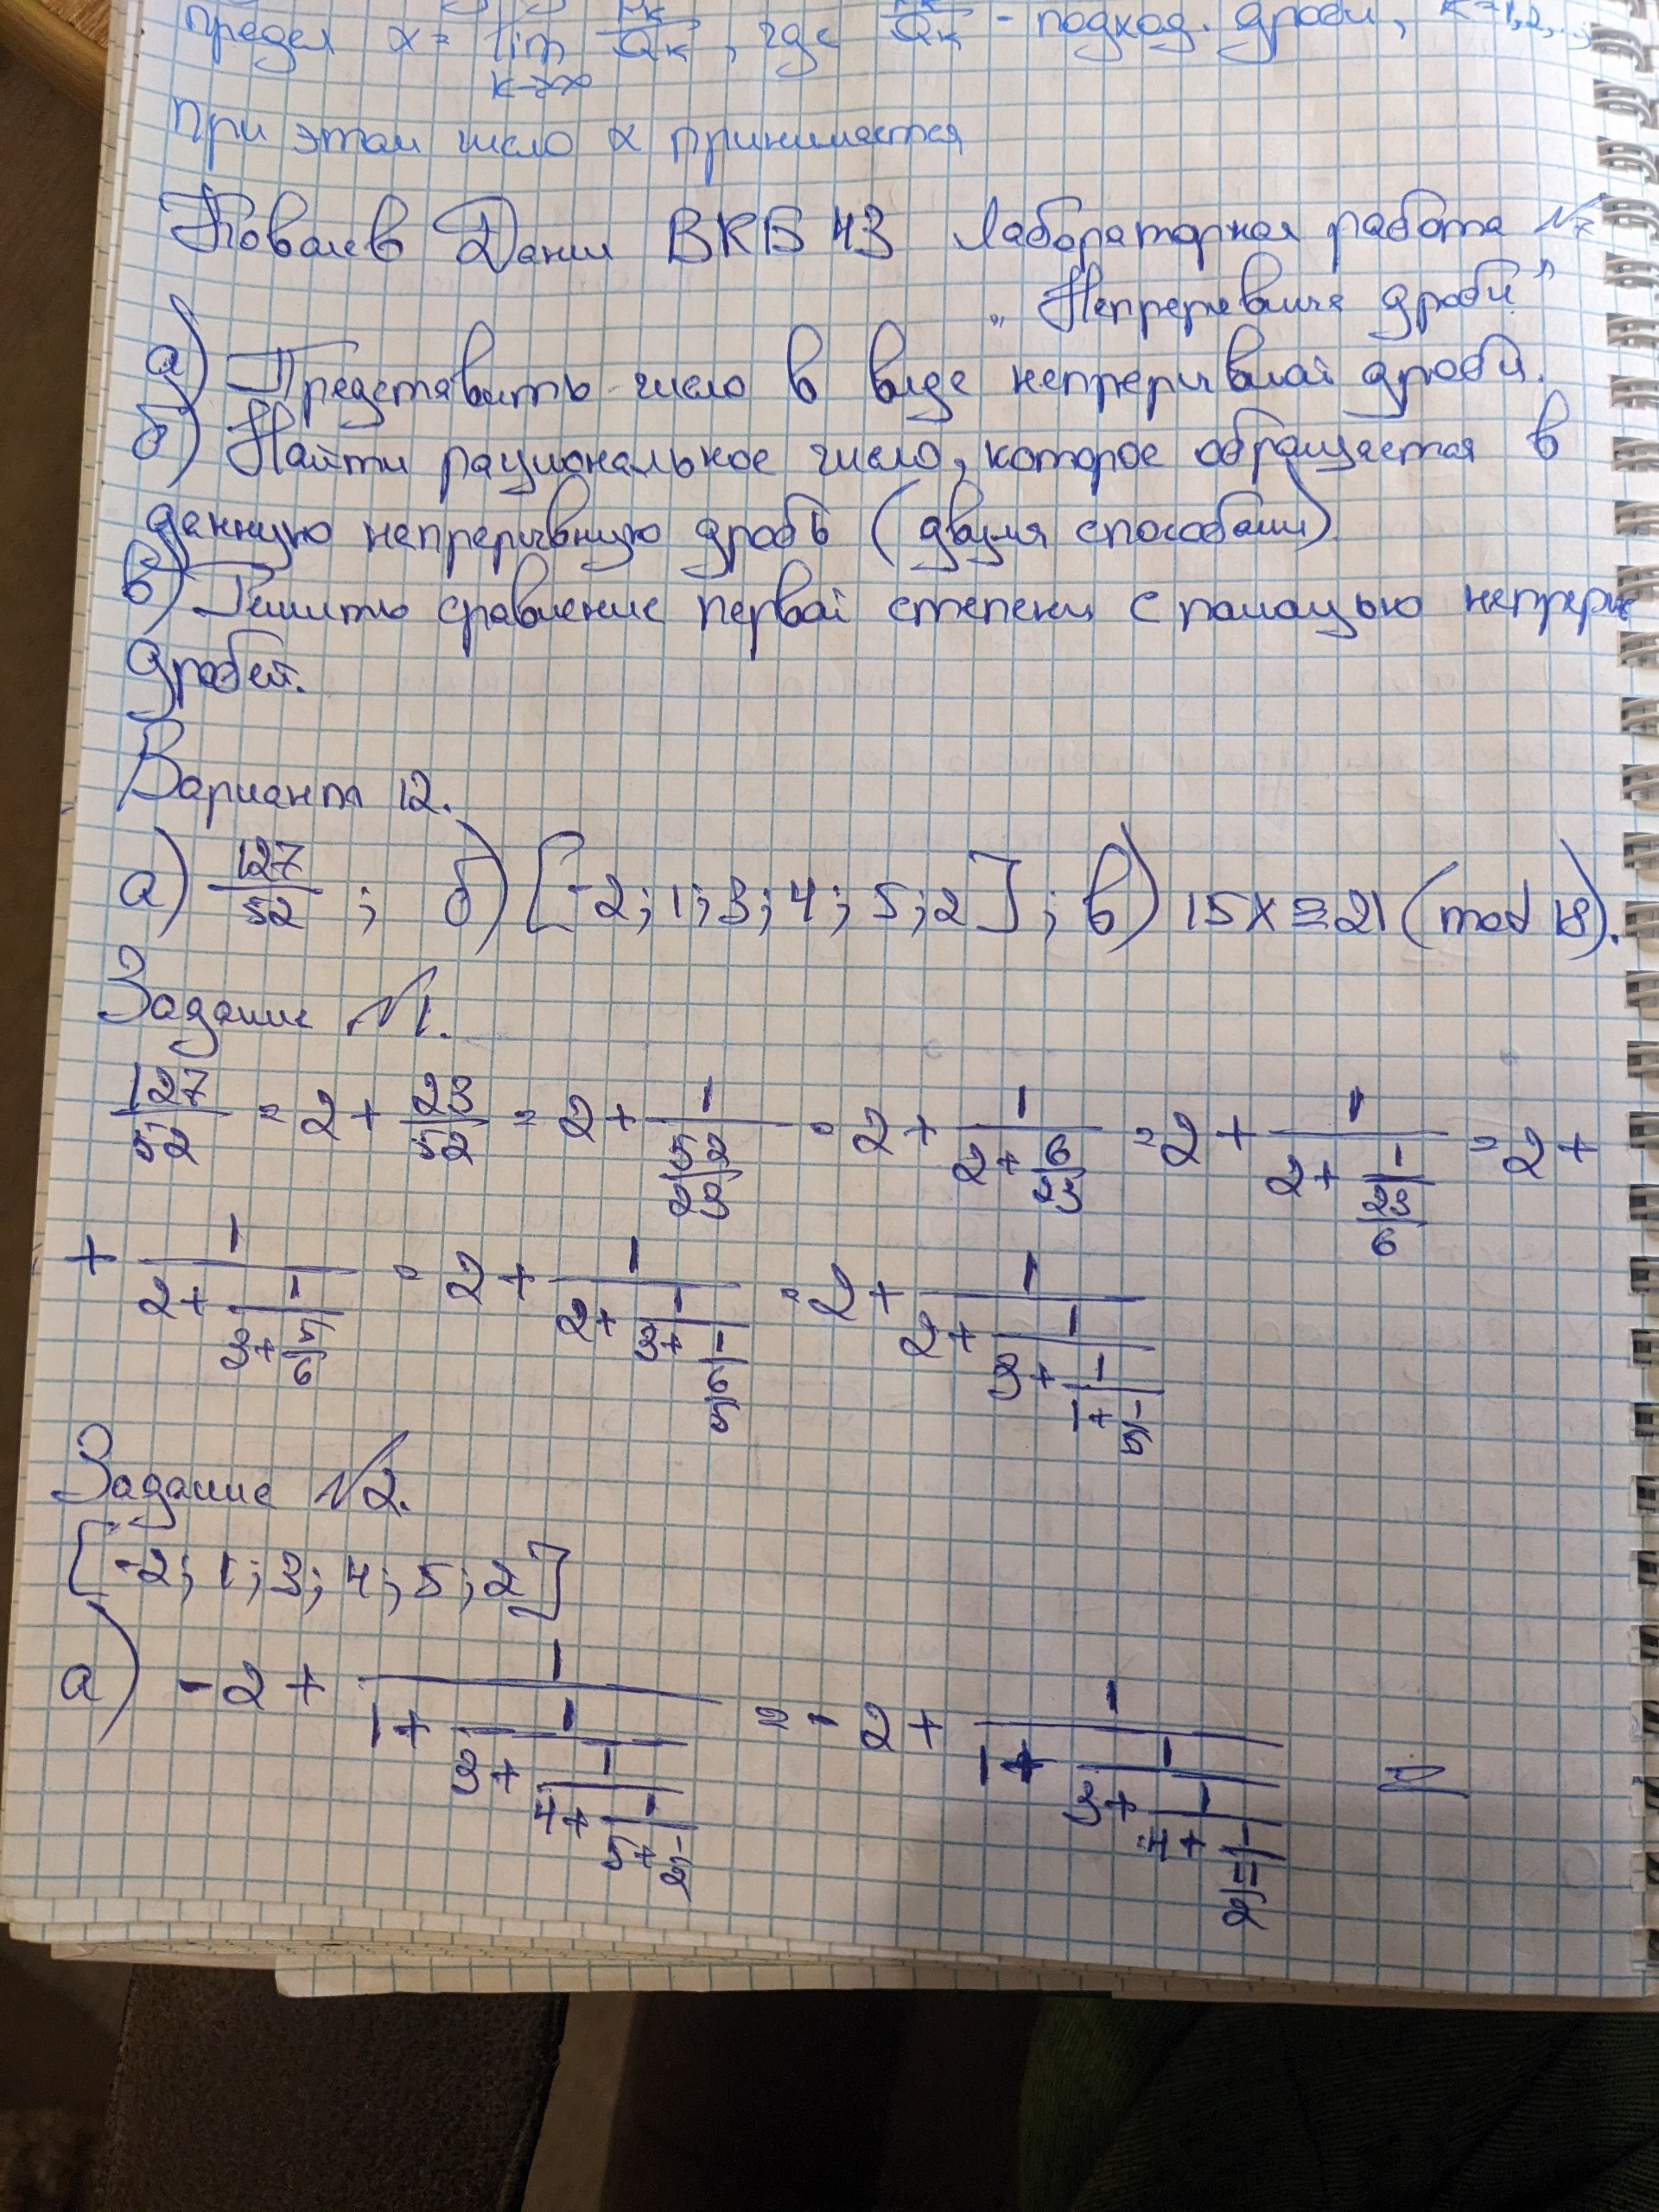 предел α = lim Pk/Qk, где Pk/Qk - подход. дроби, k=1,2,..
k→∞
При этом число α принимается
Ковалев Данил ВКБ 43 Лабораторная работа №7
„Непрерывные дроби"
а) Представить число в виде непрерывной дроби.
б) Найти рациональное число, которое обращается в
данную непрерывную дробь (двумя способами)
в) Решить сравнение первой степени с помощью непрерыв
дробей.
Вариант 12.
а) 127/52 ; б) [-2; 1; 3; 4; 5; 2] ; в) 15x ≡ 21 (mod 18).
Задание №1.
127/52 = 2 + 23/52 = 2 + 1/(52/23) = 2 + 1/(2 + 6/23) = 2 + 1/(2 + 1/(23/6)) = 2 +
+ 1/(2 + 1/(3 + 5/6)) = 2 + 1/(2 + 1/(3 + 1/(6/5))) = 2 + 1/(2 + 1/(3 + 1/(1 + 1/5)))
Задание №2.
[-2; 1; 3; 4; 5; 2]
а) -2 + 1/(1 + 1/(3 + 1/(4 + 1/(5 + 1/2)))) = -2 + 1/(1 + 1/(3 + 1/(4 + 1/(11/2)))) =